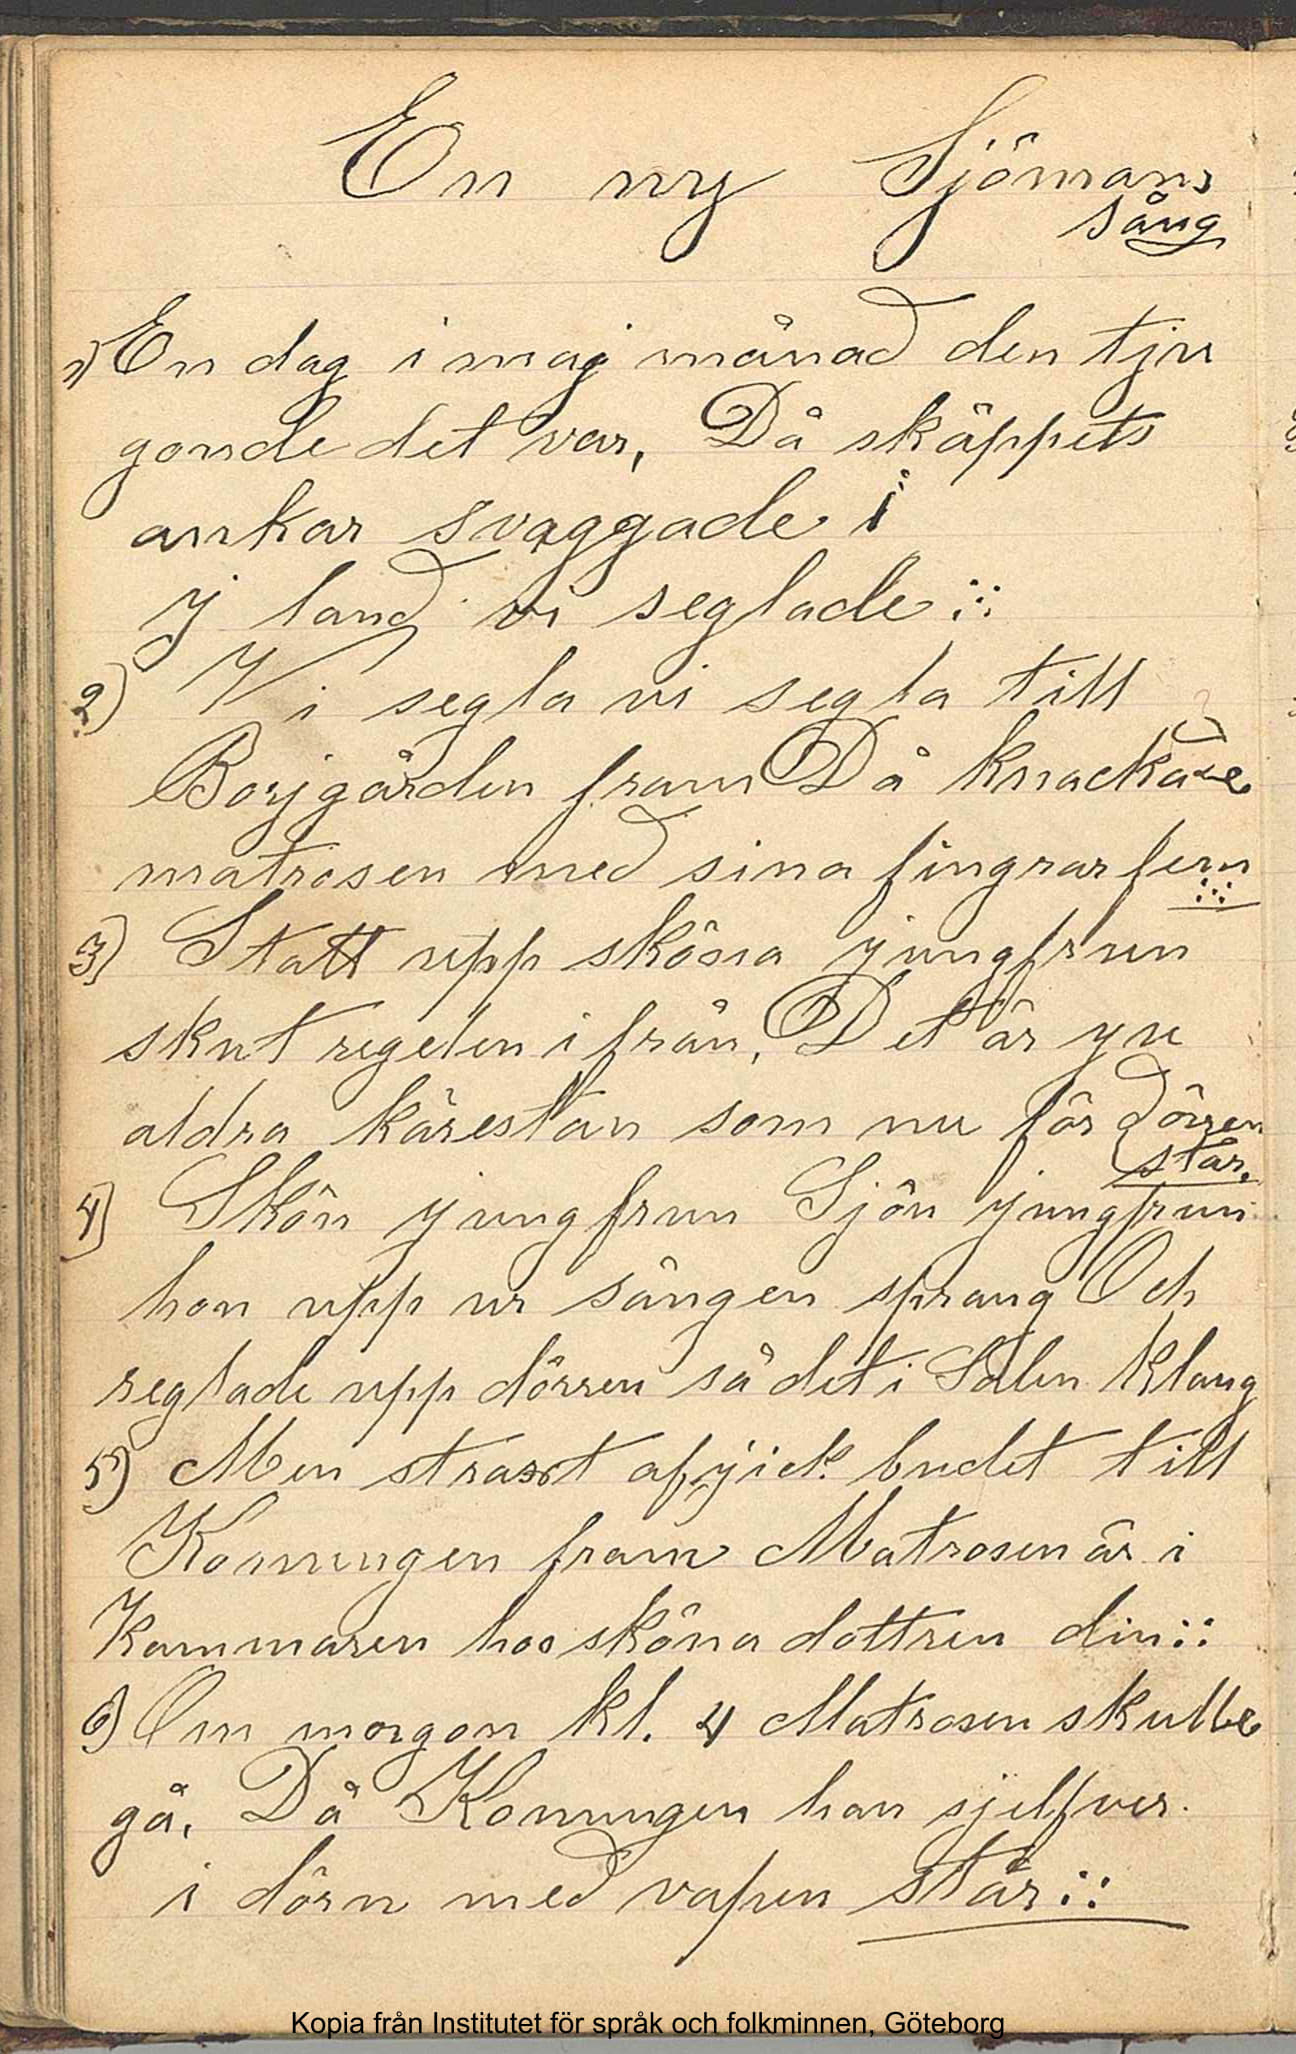 En ny Sjömans
sång
1) En dag i maj månad den tju
gonde det var, Då skäppets
ankar svaggade i
Ij land vi seglade :∴:
2) Vi segla vi segla till
Borjgården fram Då knackade
matrosen med sina fingrar fem
:∴:
3) Statt upp sköna jungfrun
skut regelen ifrån, Det är yu
aldra kärestan som nu för dörren
står.
4) Skön jungfrun Sjön jungfrun
hon upp ur sängen sprang Och
reglade upp dörren så det i Salen klang
5) Men straxt afjick budet till
Konungen fram Matrosen är i
Kammaren hos sköna dottren din :∴:
6) Om morgon kl. 4 Matrosen skulle
gå, Då Konungen han sjelfver
i dörn med vapen står :∴:
Kopia från Institutet för språk och folkminnen, Göteborg